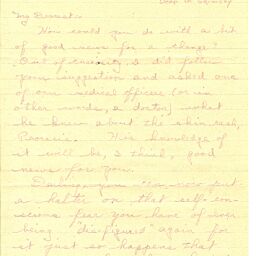 My Dearest:
How could you do with a bit
of good news for a change?
Out of curiosity, I did follow
your suggestion and asked one
of our medical officers (or in
other words, a doctor) what
he knew about the skin rash,
His knowledge of
it will be, I think, good
news for you.
Darling, you can now put
a halter on that self-con-
scious fear you have of ever
being "disfigured" again for
it just so happens that